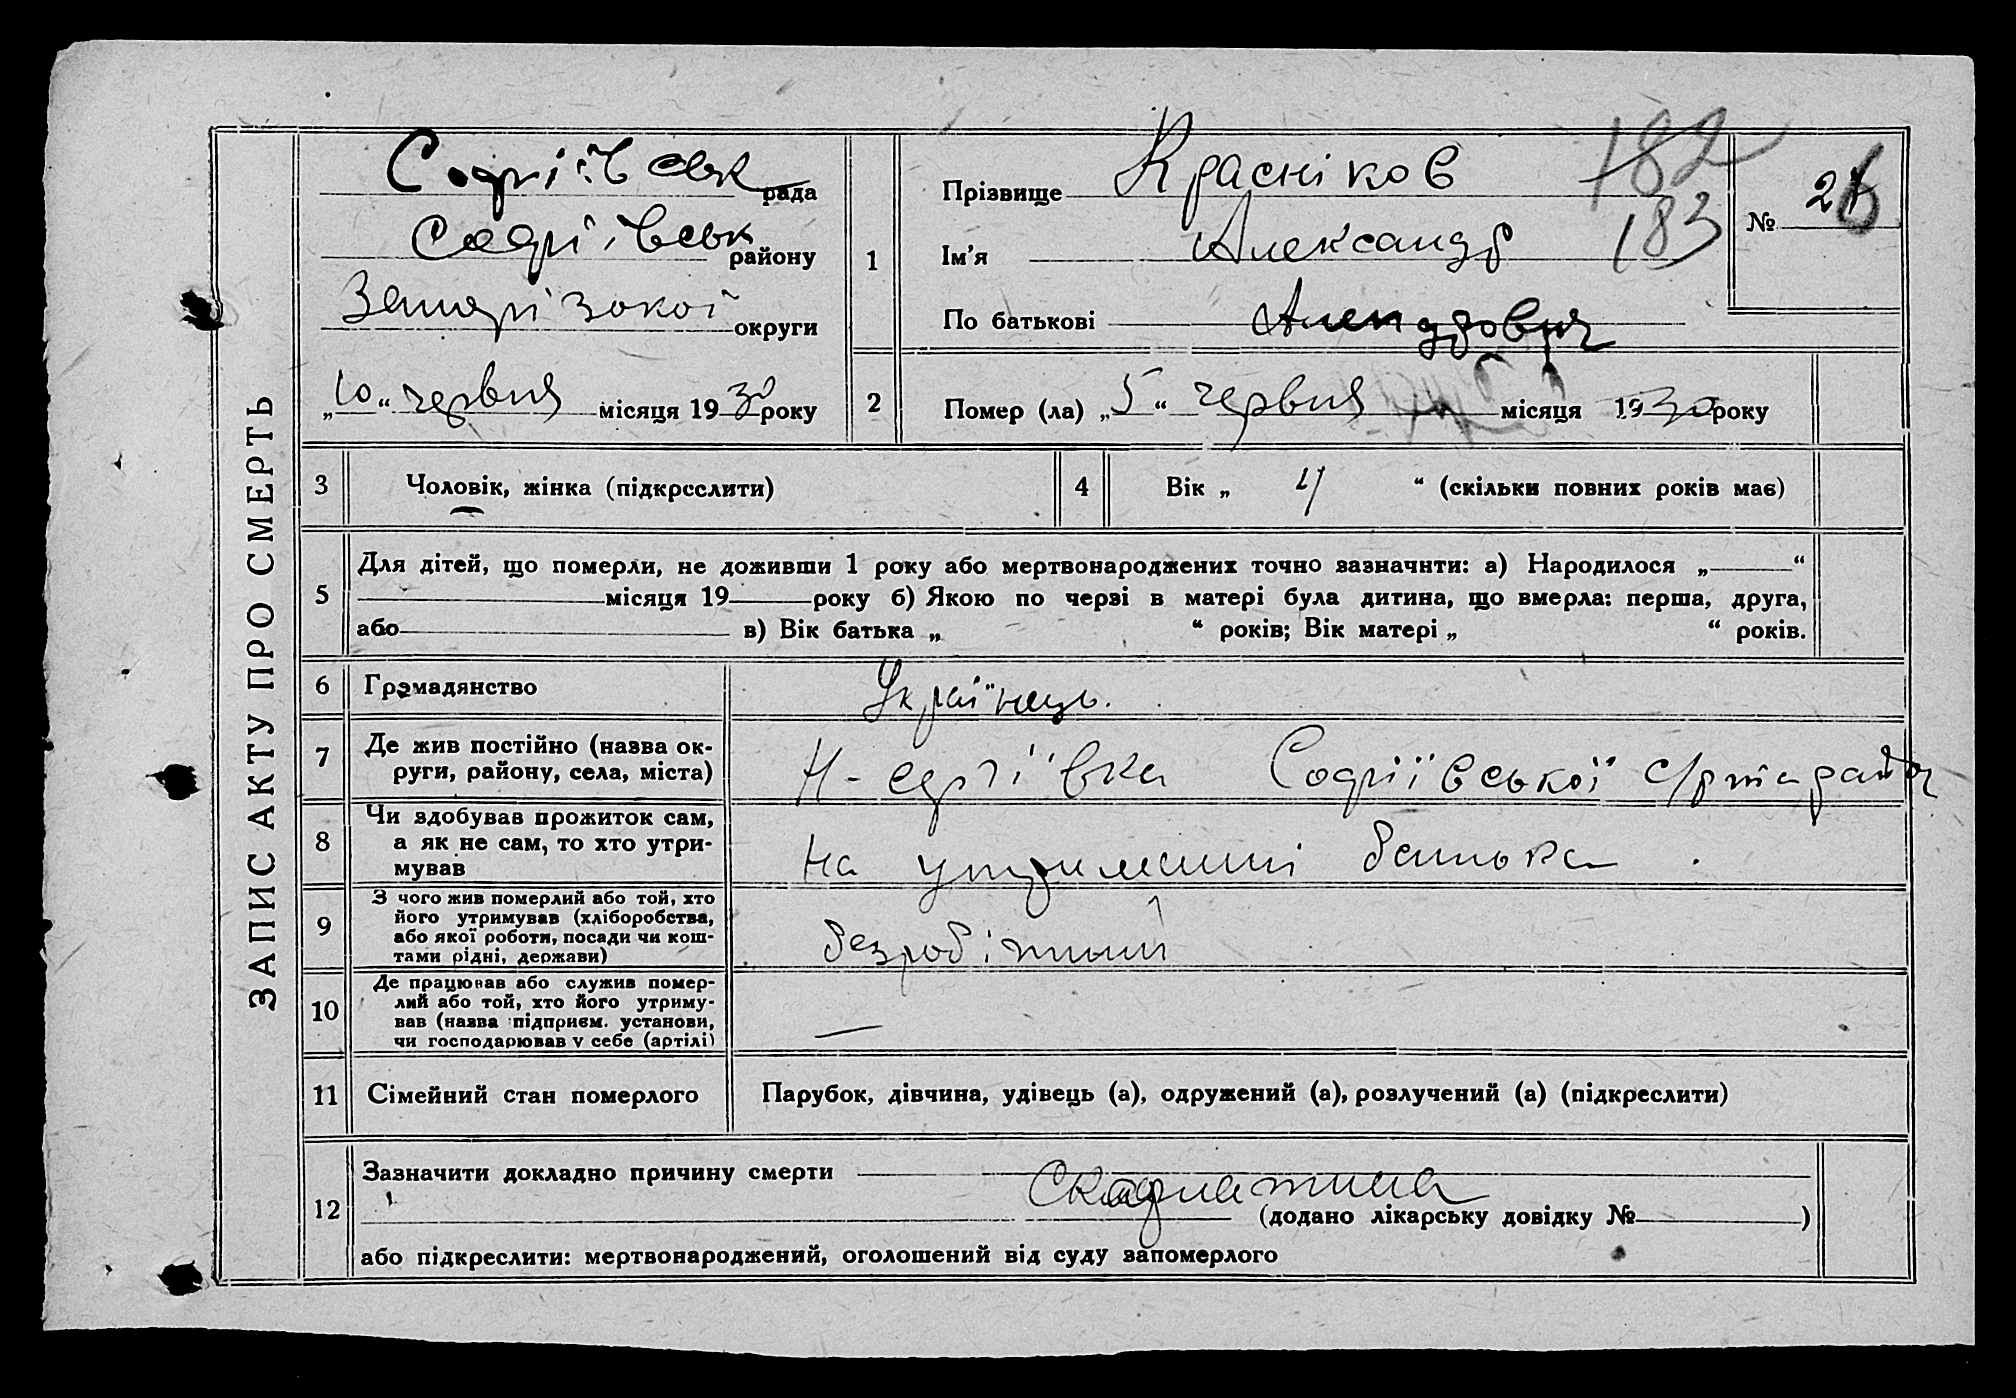 ЗАПИС АКТУ ПРО СМЕРТЬ
Софіївськ рада
Софіївськ району
Запорізької округи
„10“ червня місяця 1930 року
1
Прізвище Красніков
Ім'я Александр
По батькові
182
183
№ 26
2
Помер (ла) „5“ червня місяця 1930 року
3 Чоловік, жінка (підкреслити)
4 Вік „ 4 “ (скільки повних років має)
5 Для дітей, що померли, не доживши 1 року або мертвонароджених точно зазначити: а) Народилося „ “
місяця 19 року б) Якою по черзі в матері була дитина, що вмерла: перша, друга,
або в) Вік батька „ “ років; Вік матері „ “ років.
6 Громадянство Українець.
7 Де жив постійно (назва ок-
руги, району, села, міста)
Н-сергіївка Софіївської с/р та району
8 Чи здобував прожиток сам,
а як не сам, то хто утри-
мував
На утриманні батька.
9 З чого жив померлий або той, хто
його утримував (хліборобства,
або якої роботи, посади чи кош-
тами рідні, держави)
безробітний
10 Де працював або служив помер-
лий або той, хто його утриму-
вав (назва підприєм. установи,
чи господарював у себе (артілі)
—
11 Сімейний стан померлого Парубок, дівчина, удівець (а), одружений (а), розлучений (а) (підкреслити)
12 Зазначити докладно причину смерти
Скарлатина
(додано лікарську довідку № )
або підкреслити: мертвонароджений, оголошений від суду запомерлого